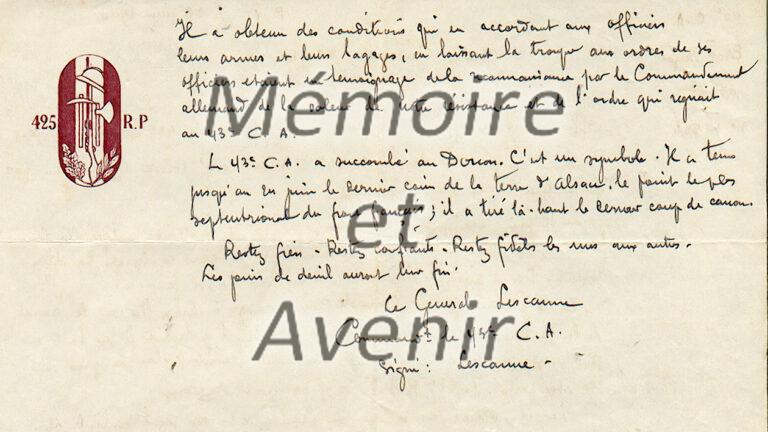 Il a obtenu des conditions qui en accordant aux officiers
leurs armes et leurs bagages, en laissant la troupe aux ordres de ses
officiers étaient un témoignage de la reconnaissance par le Commandement
allemand de la valeur de notre résistance et de l'ordre qui régnait
au 43e C.A.
Le 43e C.A. a succombé au Donon. C'est un symbole. Il a tenu
jusqu'au en juin le dernier coin de la terre d'Alsace, le point le plus
septentrional du front français ; il a tiré là-haut le dernier coup de canon.
Restez fiers - Restez confiants - Restez fidèles les uns aux autres -
Les jours de deuil auront leur fin.
Le Général Lescanne
Commandt le 43e C.A.
Signé : Lescanne -
425 R.P
Mémoire
et
Avenir